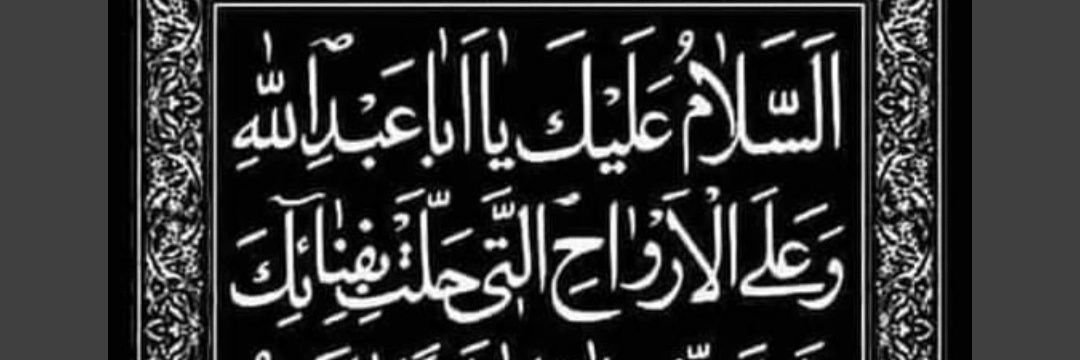 اَلسَّلامُ عَلَيْكَ يا اَبا عَبْدِ اللهِ
وَعَلَى الْاَرْواحِ الَّتى حَلَّتْ بِفِنائِكَ